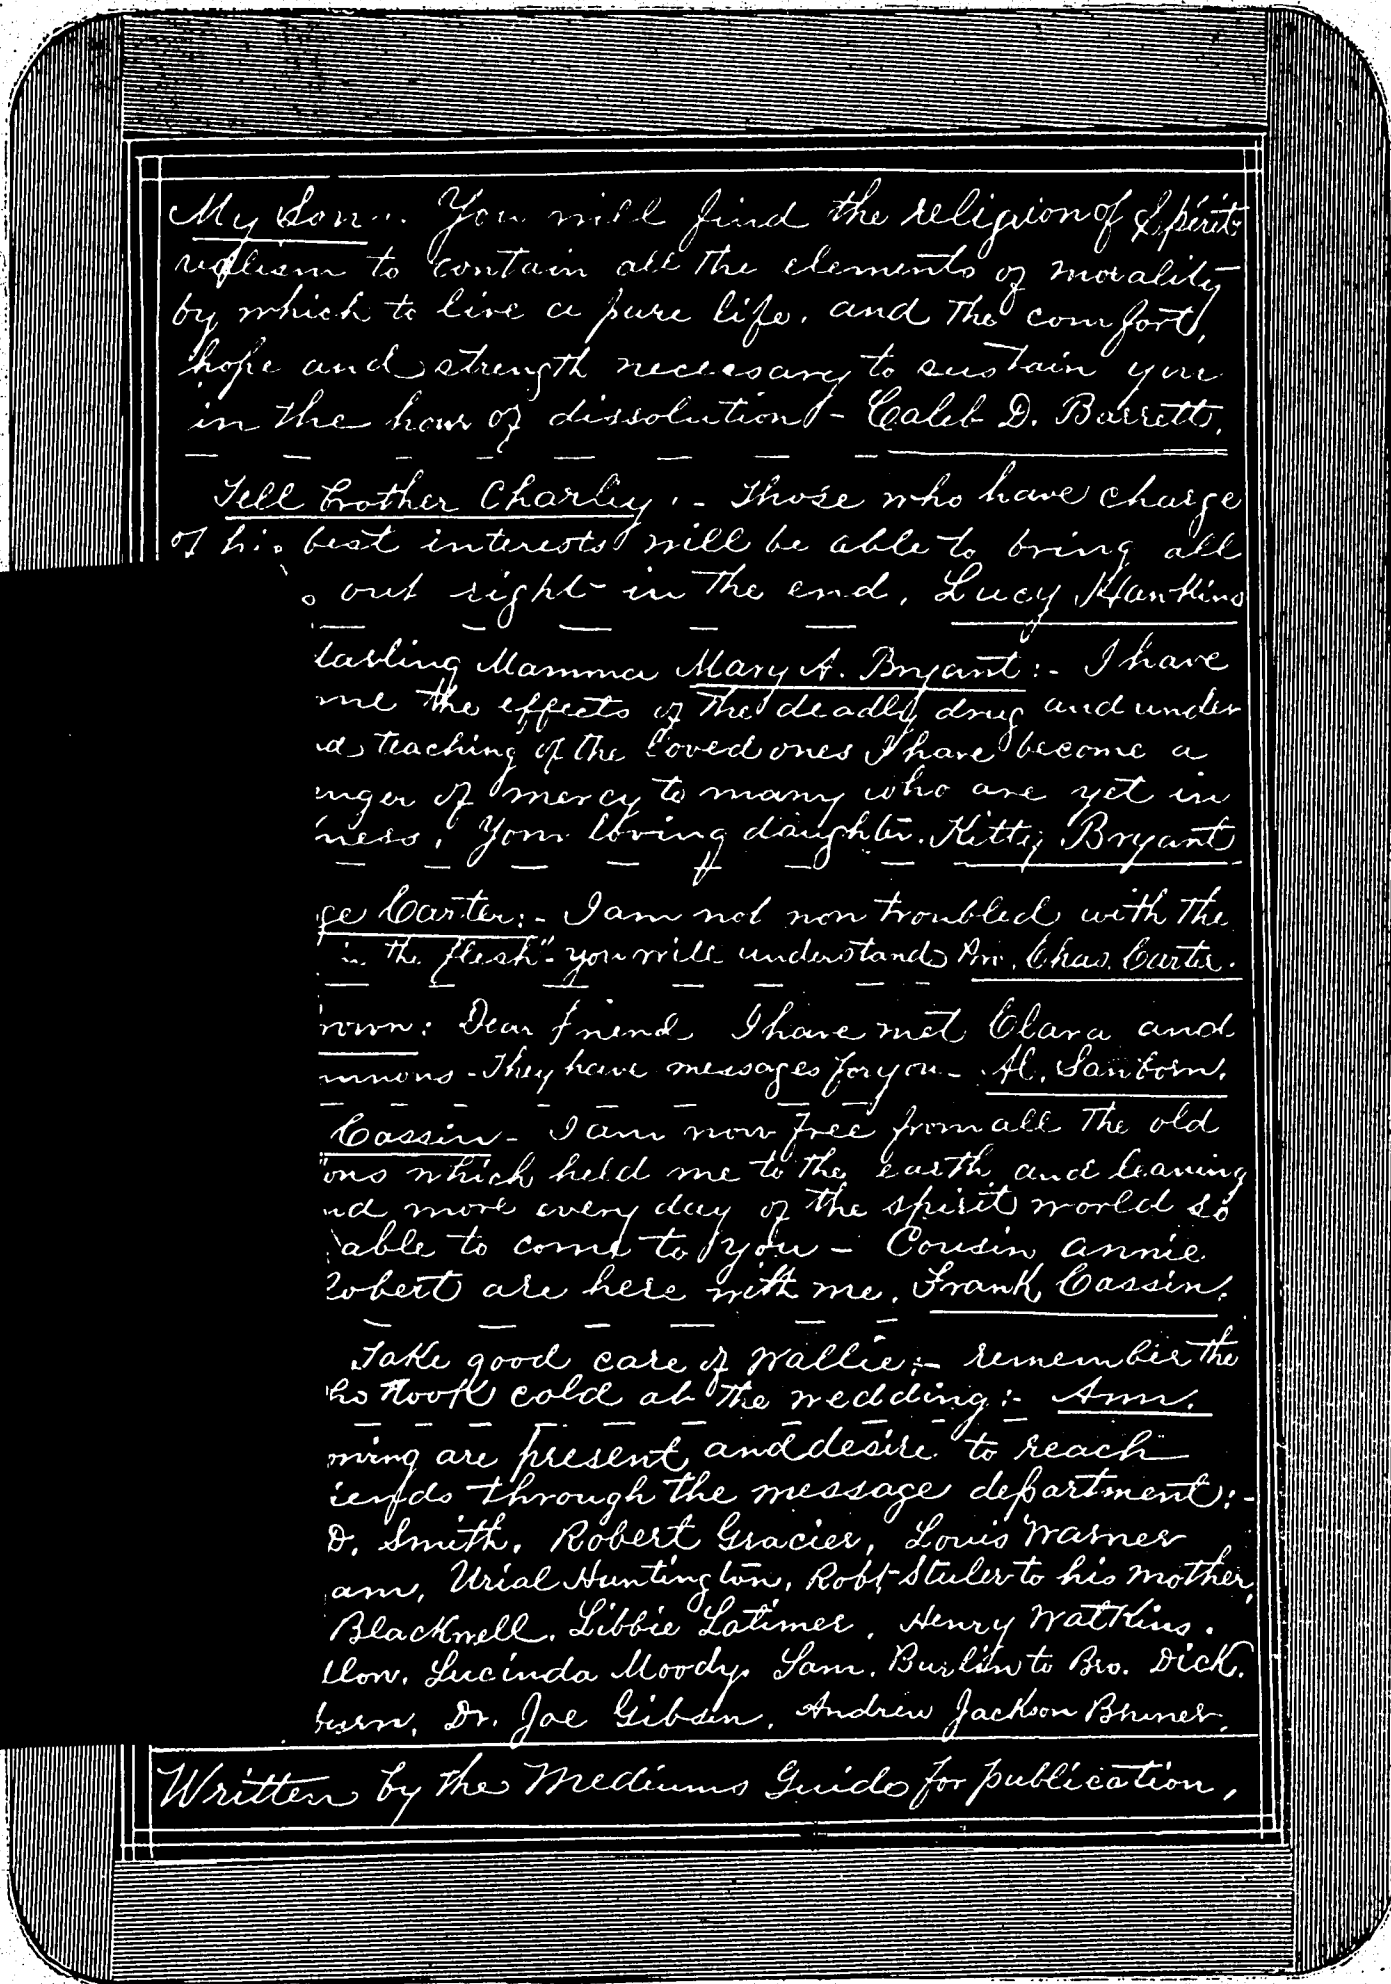 My Son:- You will find the religion of Spirit-
ualism to contain all the elements of morality
by which to live a pure life, and the comfort,
hope and strength necessary to sustain you
in the hour of dissolution - Caleb D. Barretts.
Tell brother Charley. - Those who have charge
of his best interests will be able to bring all
out right in the end. Lucy Hawkins
darling Mamma Mary A. Bryant:- I have
me the effects of the deadly drug and under
teaching of the loved ones I have become a
nger of mercy to many who are yet in
ness. Your loving daughter. Kitty Bryant
ge Carter:- I am not now troubled with the
in the flesh" - you will understand Chas. Carter.
rown: Dear friend I have met Clara and
mmons - They have messages for you - Al. Sanborn.
Cassin - I am now free from all the old
ons which held me to the earth and leaning
nd more every day of the spirit world so
able to come to you - Cousin Annie
Robert are here with me. Frank Cassin.
Take good care of Wallie:- remember the
ho took cold at the wedding:- Ann.
wing are present and desire to reach
iends through the message department:-
D. Smith. Robert Gracier, Louis Warner
am, Urial Huntington, Robt Stuler to his mother,
Blackwell. Libbie Latimer. Henry Watkins.
llon. Lucinda Moody. Sam. Burlin to Bro. Dick.
burn. Dr. Joe Gibson. Andrew Jackson Bruner.
Written by the Mediums Guide for publication.